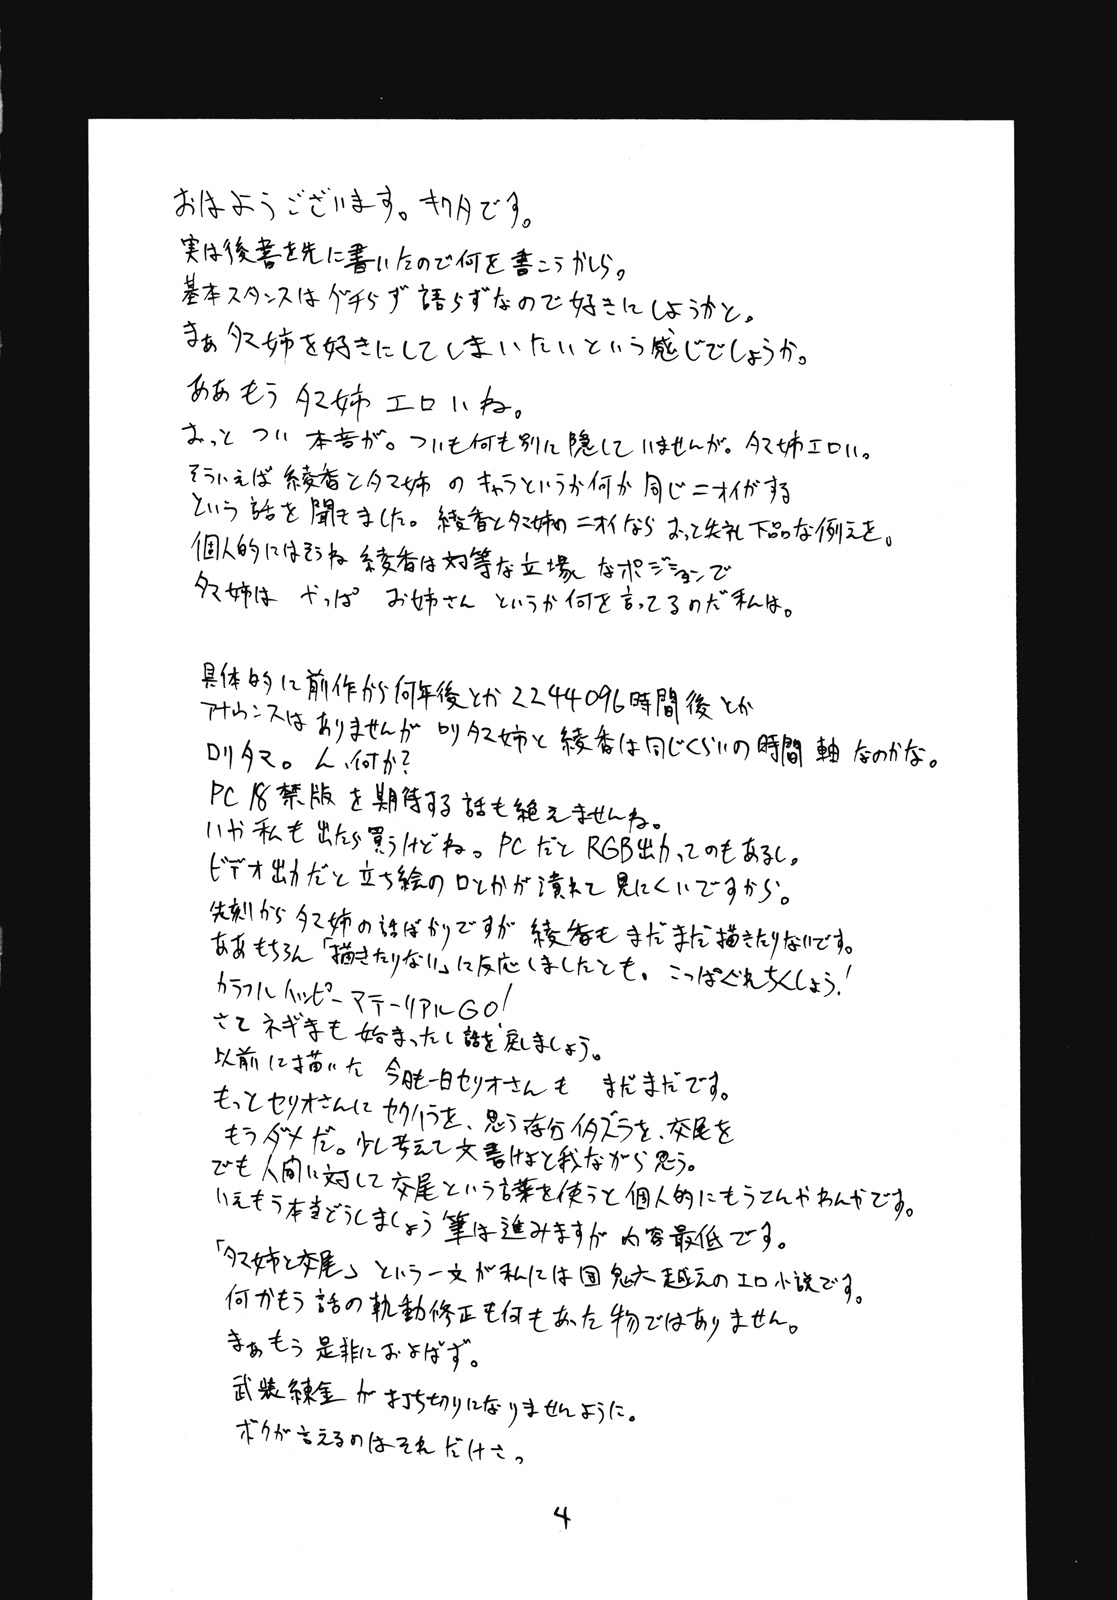 おはようございます。キクタです。
実は後書を先に書いたので何を書こうかしら。
基本スタンスはグチらず語らずなので好きにしようかと。
まぁタマ姉を好きにしてしまいたいという感じでしょうか。
ああもう タマ姉 エロいね。
おっと つい 本音が。ついも何も別に隠していませんが。タマ姉エロい。
そういえば 綾香とタマ姉 の キャラというか何か 同じニオイがする
という話を聞きました。綾香とタマ姉のニオイなら おっと失礼 下品な例えを。
個人的にはそうね 綾香は対等な立場 なポジションで
タマ姉は やっぱ お姉さん というか何を言ってるのだ私は。
具体的に前作から何年後とか2244096時間後とか
アナウンスはありませんが ロリタマ姉と 綾香は同じくらいの時間軸なのかな。
ロリタマ。ん、何か？
PC18禁版を期待する話も絶えませんね。
いや私も出たら買うけどね。PCだと RGB出力ってのもあるし。
ビデオ出力だと立ち絵の口とかが潰れて見にくいですから。
先刻からタマ姉の話ばかりですが 綾香もまだまだ描きたりないです。
ああもちろん「描きたりない」に反応しましたとも。こっぱぐれちくしょう！
カラフルハッピーマテーリアルGO！
さて ネギまも始まったし話を戻しましょう。
以前に描いた 今日も一日セリオさんも まだまだです。
もっとセリオさんにセクハラを、思う存分イタズラを、交尾を
もうダメだ。少し考えて文書けよと我ながら思う。
でも人間に対して交尾という言葉を使うと個人的にもうてんやわんやです。
いえもう本当どうしましょう 筆は進みますが内容最低です。
「タマ姉と交尾」という一文が私には団鬼六越えのエロ小説です。
何かもう話の軌動修正も何もあった物ではありません。
まぁもう是非におよばず。
武装錬金が打ち切りになりませんように。
ボクが言えるのはそれだけさ。
4